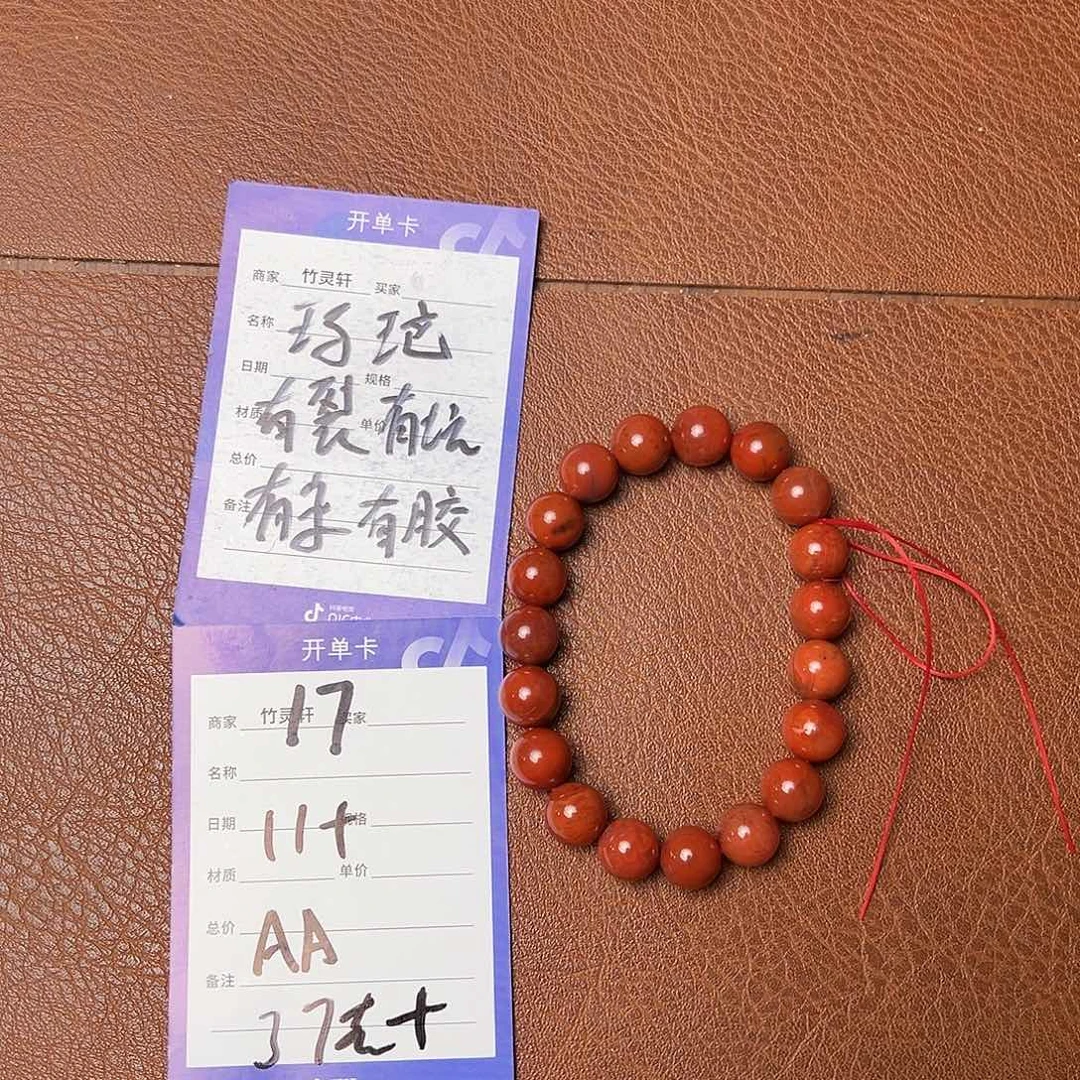 开单卡
商家 竹灵轩 买家
名称 玛瑙
日期 规格
材质 有裂 单价 有坑
总价
备注 有杂 有胶
开单卡
商家 竹灵轩 17 买家
名称
日期 11+ 规格
材质 单价
总价 AA
备注
37克+